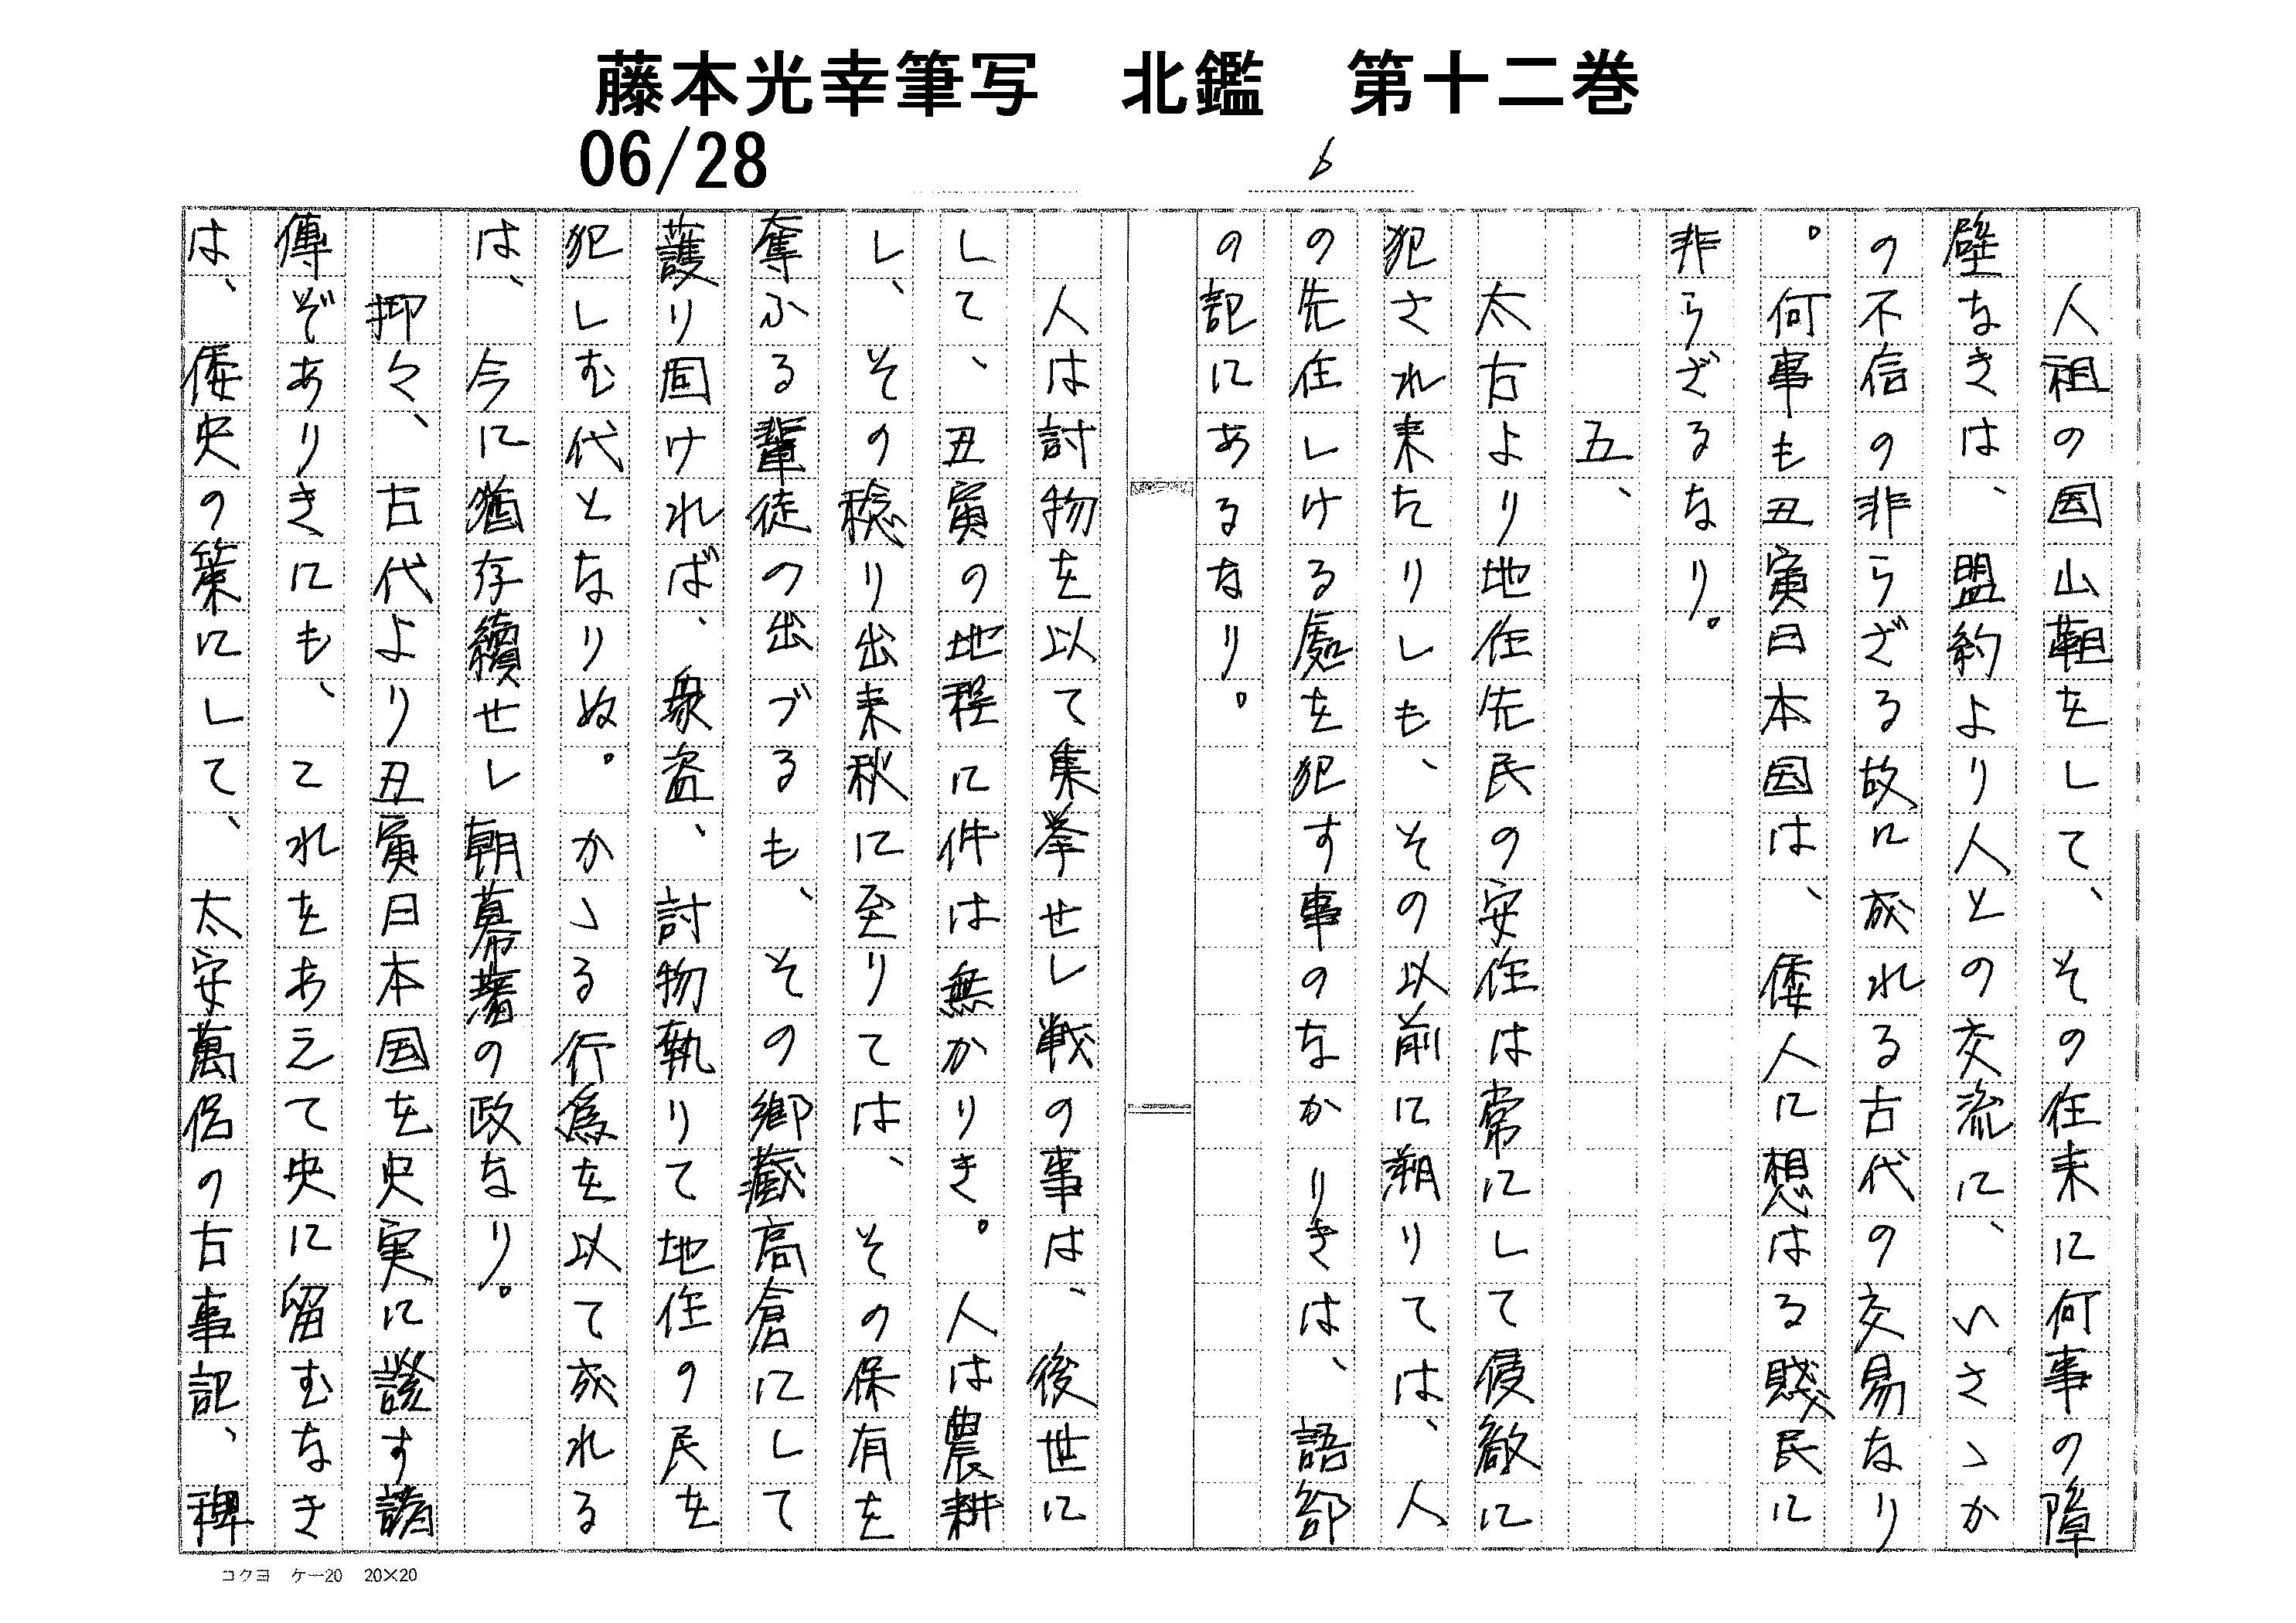 藤本光幸筆写　北鑑　第十二巻
06/28
6
人祖の国山靼をして、その住来に何事の障
壁なきは、盟約より人との交流に、いさゝか
の不信の非らざる故に成れる古代の交易なり
。何事も丑寅日本国は、倭人に想はる賤民に
非らざるなり。
五、
太古より地住先民の安住は常にして侵敵に
犯され来たりしも、その以前に朔りては、人
の先住しける處を犯す事のなかりきは、語部
の記にあるなり。
人は討物を以て集挙せし戦の事は、後世に
して、丑寅の地程に件は無かりき。人は農耕
し、その稔り出来秋に至りては、その保有を
奪ふる輩徒の出づるも、その郷藏高倉にして
護り固ければ、衆盗、討物執りて地住の民を
犯しむ代となりぬ。かゝる行為を以て成れる
は、今に猶存續せし朝幕藩の政なり。
抑々、古代より丑寅日本国を史実に談す諸
傳ぞありきにも、これをあえて史に留むなき
は、倭史の策にして、太安萬侶の古事記、稗
コクヨ　ケー20　20×20